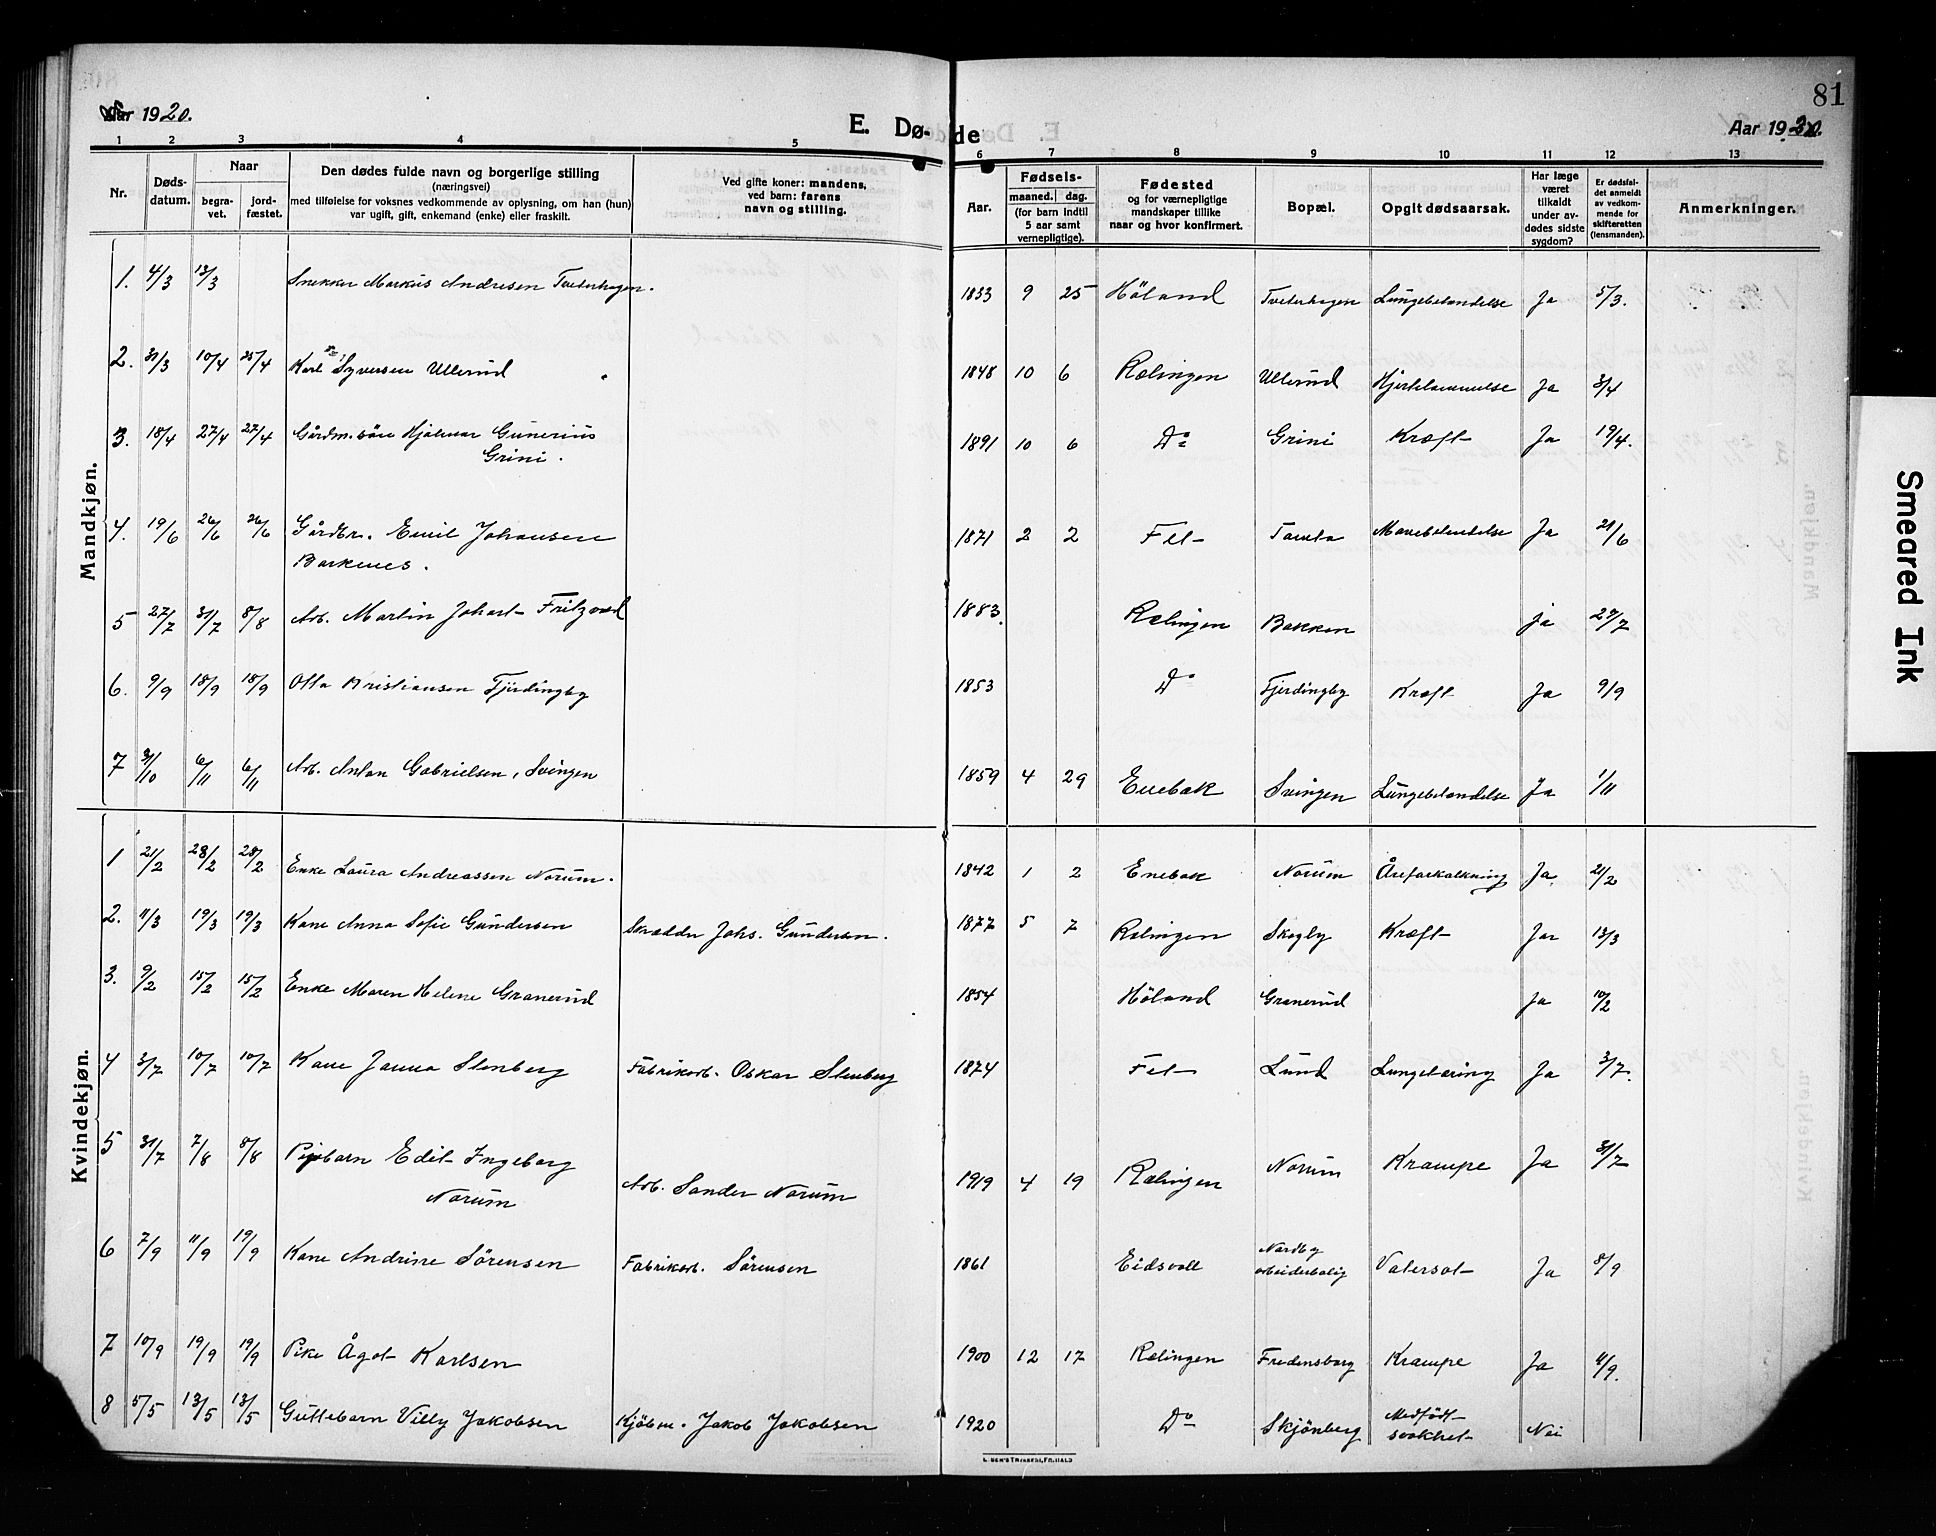 81
Aar 1920.
E. Dø- de
Aar 1920.
1 2 3 4 5 6 7 8 9 10 11 12 13
Nr.
Døds-datum.
Naar
begra-vet.
jord-fæstet.
Den dødes fulde navn og borgerlige stilling
(næringsvei)
med tilføielse for voksnes vedkommende av oplysning, om han (hun)
var ugift, gift, enkemand (enke) eller fraskilt.
Ved gifte koner: mandens,
ved barn: farens
navn og stilling.
Aar.
Fødsels-
maaned. dag.
(for barn indtil
5 aar samt
vernepligtige).
Fødested
og for værnepligtige
mandskaper tillike
naar og hvor konfirmert.
Bopæl.
Opgit dødsaarsak.
Har læge
været
tilkaldt
under av-
dødes sidste
sygdom?
Er dødsfal-
det anmeldt
av vedkom-
mende for
skifteretten
(lensmanden).
Anmerkninger.
Mandkjøn.
1. 4/3 13/3 Snekker Markus Andresen Tveterhagen. 1833 9 25 Höland Tveterhagen Lungebetændelse Ja 5/3.
2. 31/3 10/4 25/4 Karl Syversen Ullerud 1848 10 6 Rælingen Ullerud Hjertelammelse Ja 3/4
3. 18/4 27/4 27/4 Gårdm.sön Hjalmar Gunerius
Grini. 1891 10 6 Do Grini Kræft Ja 19/4.
4. 19/6 26/6 26/6 Gårdbr. Emil Johansen
Barkenes. 1871 2 2 Fet Tomta Mavebetendelse Ja 21/6
5 27/7 31/7 8/8 Arb. Martin Johart Fritzvod 1883. Rælingen Bakken ja 27/7
6. 9/9 18/9 18/9 Otto Kristiansen Fjerdingby 1853 Do Fjerdingby Kræft Ja 9/9
7 31/10 6/11 6/11 Arb. Anton Gabrielsen, Svingen 1859 4 29 Enebak Svingen Lungebetændelse Ja 1/11
Kvindekjøn.
1 21/2 28/2 28/2 Enke Laura Andreassen Norum. 1842 1 2 Enebak Norum Åreforkalkning Ja. 21/2
2. 11/3 19/3 19/3 Kone Anna Sofie Gundersen Skrædder Johs. Gundersen. 1877 5 7 Rælingen Skogly Kræft Ja 13/3
3. 9/2 15/2 15/2 Enke Maren Helene Granerud 1854 Höland Granerud Ja 10/2
4 3/7 10/7 10/7 Kone Janna Stenberg Fabrikarb. Oskar Stenberg 1874 Fet Lund Lungetæring Ja 3/7.
5 31/7 7/8 8/8 Pikebarn Edit Ingeborg
Norum Arb. Sander Norum 1919 4 19 Rælingen Norum Krampe Ja 31/7
6 7/9 11/9 19/9 Kone Andrine Sörensen Fabrikarb. Sörensen 1861 Eidsvoll Nordby
arbeiderbolig Vatersot Ja 8/9
7 10/9 19/9 19/9 Pike Ågot Karlsen 1900 12 17 Rælingen Fredensborg Krampe Ja 11/9.
8 5/5 13/5 13/5 Guttebarn Villy Jakobsen Kjöbm. Jakob Jakobsen 1920 Do Skjönberg Medfödt
svakhet Nei
Smeared Ink